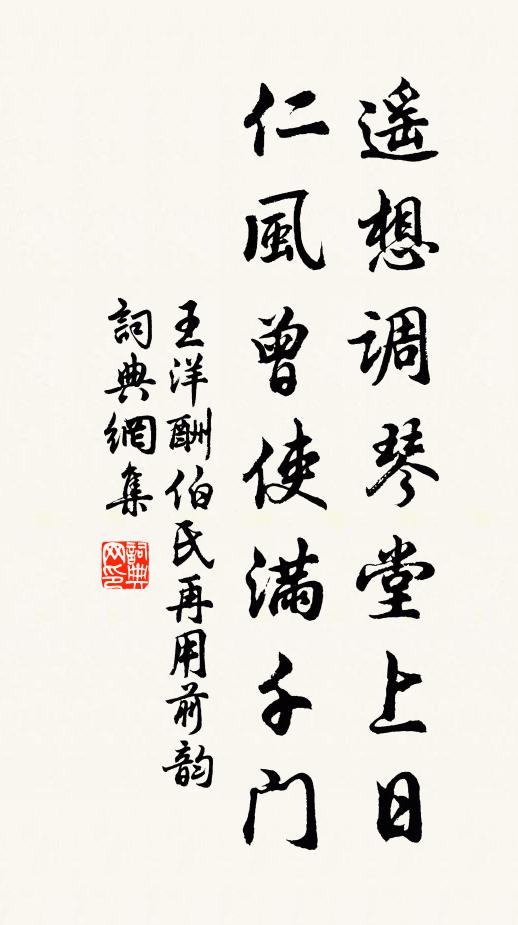 遥想调琴堂上日
仁風曾使满千门
王洋酬伯氏再用前韵
詞典網集
詞典网印